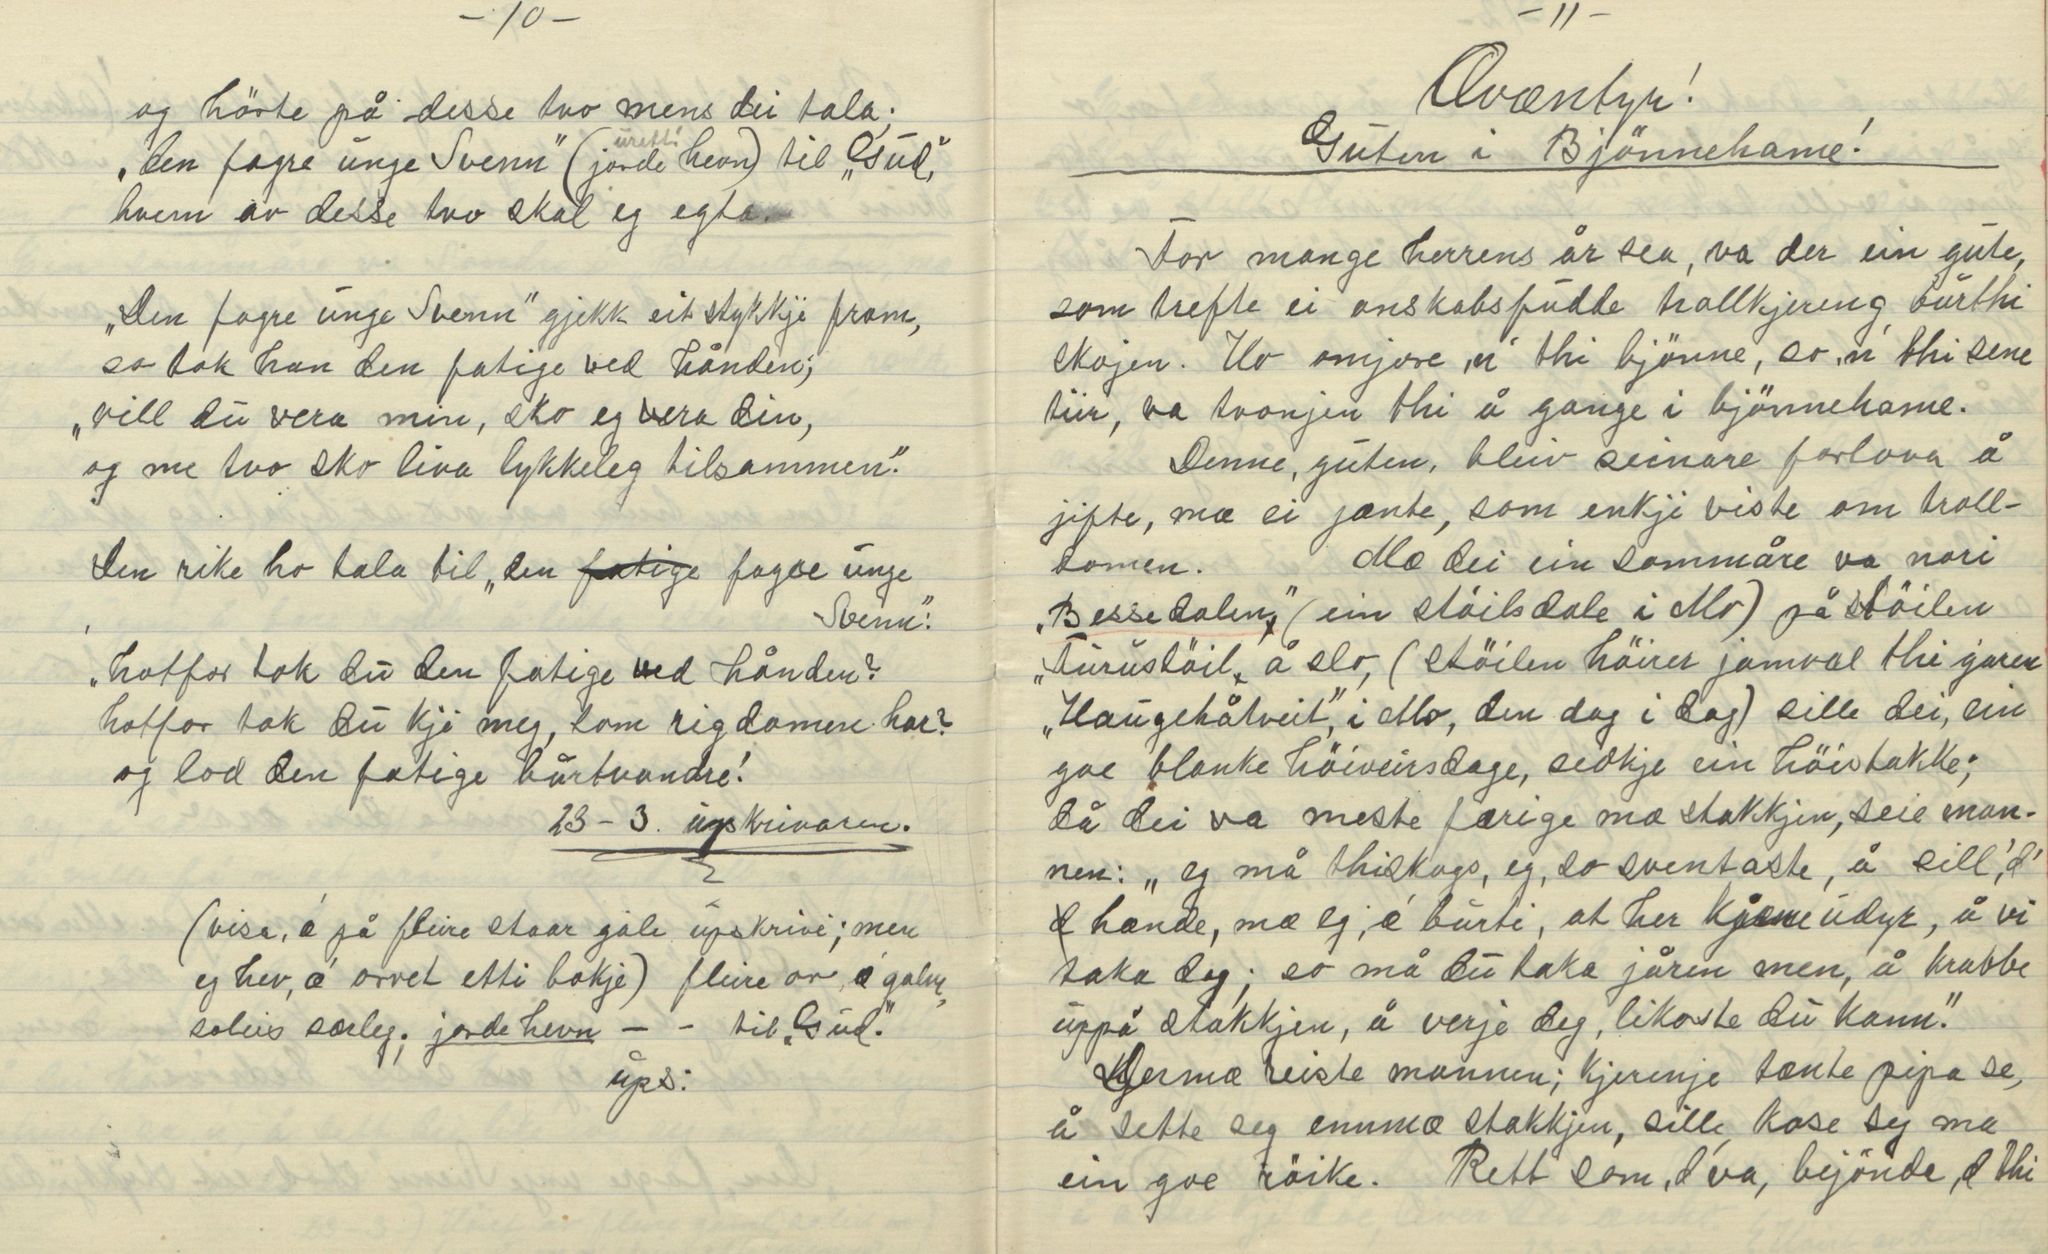 - 10 -
og hörte på desse tvo mens dei tala;
urett!
„den fagre unge Svenn" (jorde hevn) til „Gud",
hvem av desse tvo skal eg egta.
„Den fagre unge Svenn" gjekk eit stykkje fram,
so tok han den fatige ved hånden;
„vill du vera min, sko eg vera din,
og me tvo sko liva lykkeleg tilsammen".
Den rike ho tala til „den fatige fagre unge
Svenn":
„hotfor tok du den fatige ved hånden?
hotfor tok du kje meg, som rigdomen har?
og lod den fatige burtvandre!
23 - 3. uppskrivaren.
(visa, é på fleire staar gale uppskrivi; men
eg hev, é arvet etti bokje) fleire av é galne,
soleis særleg; jorde hevn - - til „Gud".
ups:
- 11 -
Ævæntyr!
Guten i Bjönnehame!
For mange herrens år sea, va der ein gute,
som trefte ei onskabsfudde trollkjereng burthi
skojen. Ho omjore 'n thi bjönne, so 'n thi sene
tiir, va tvonjen thi å gange i bjönnehame.
Denne, guten, bleiv seinare forlova å
jifte, mæ ei jænte, som enkji viste om troll-
domen. Mæ dei ein sommåre va nori
„Bessedalen" (ein stöilsdale i Mo) på stöilen
„Furustöil" å slo, (stöilen höirer jamvæl thi garen
„Haugehåtveit", i Mo, den dag i dag) sille dei, ein
goe blanke höiveirsdage, setkje ein höistakke;
då dei va meste færige mæ stakkjen, seie man-
nen: „eg må thiskogs, eg, so sventaste, å sill', d'
hænde, mæ eg, é burti, at her kjæme udyr, å vi
taka deg; so må du taka jåren men, å krabbe
uppå stakkjen, å verje deg, likaste du kann".
Dermæ reiste mannen; kjerenje tænte pipa se,
å sette seg ennmæ stakkjen, sille kose seg mæ
ein goe röike. Rett som, d' va, bejönde, d thi